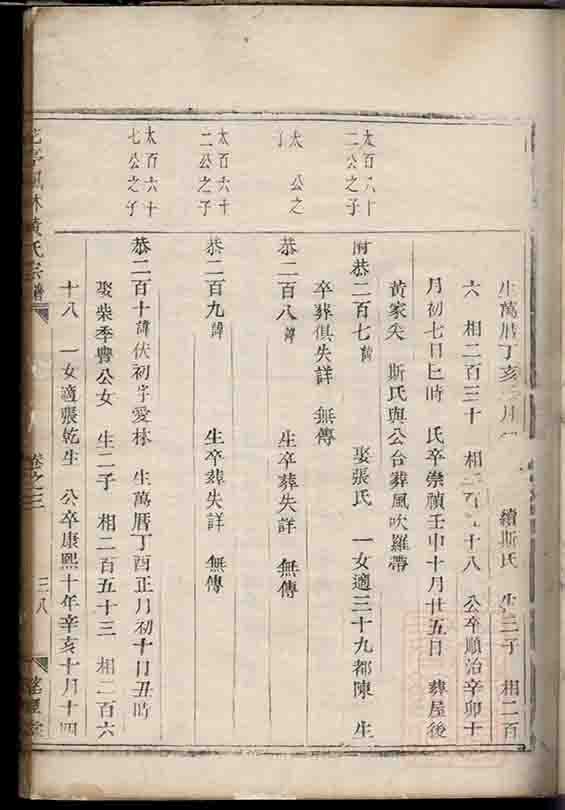 生萬曆丁亥 月 續斯氏 生二子 相二百
六 相二百三十 相 十八 公卒順治辛卯十
月初七日巳時 氏卒崇禎壬申十月廿五日 葬屋後
黃家尖 斯氏與公合葬風吹羅帶
太百六十
二公之子
府恭二百七諱 娶張氏 一女適三十九都陳 生
卒葬俱失詳 無傳
太 公之
子
恭二百八諱 生卒葬失詳 無傳
太百六十
二公之子
恭二百九諱 生卒葬失詳 無傳
太百六十
七公之子
恭二百十諱伏初字愛林 生萬曆丁酉正月初十日丑時
娶柴季豐公女 生二子 相二百五十三 相二百六
十八 一女適張乾生 公卒康熙十年辛亥十月十四
林黃氏宗譜 卷之三 三八